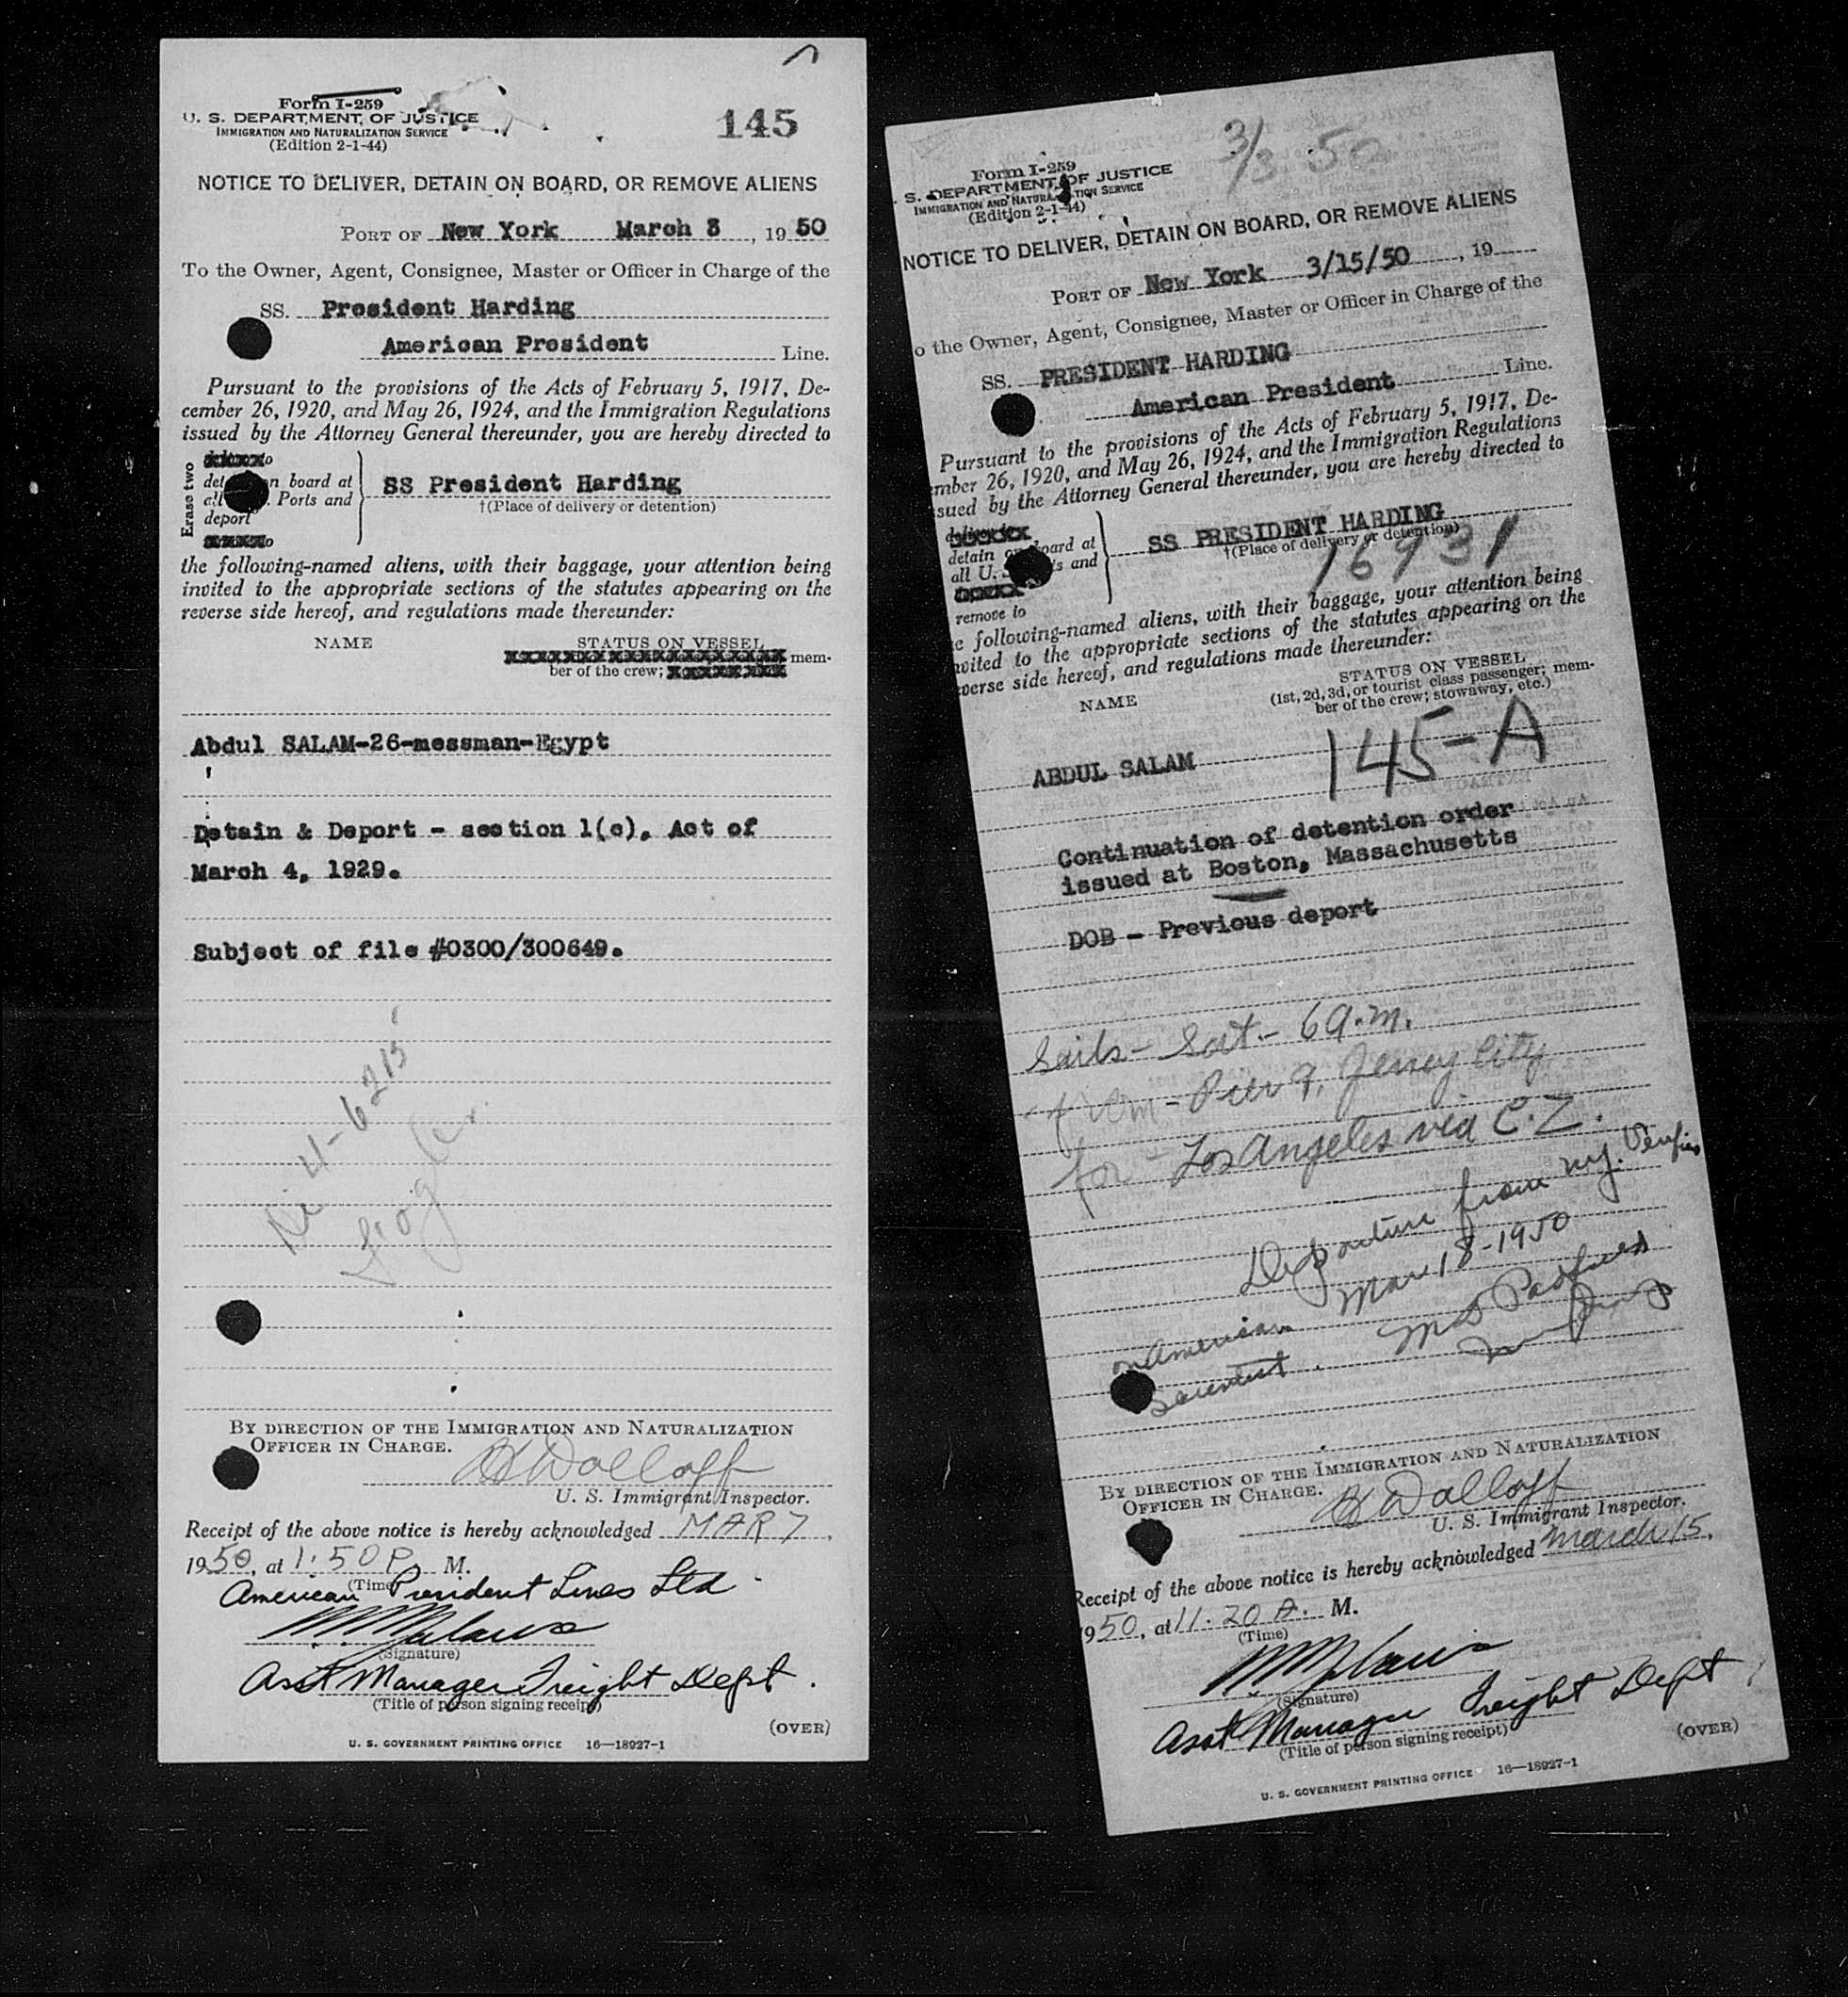 Form I-259
U. S. DEPARTMENT OF JUSTICE
IMMIGRATION AND NATURALIZATION SERVICE
(Edition 2-1-44)
145
NOTICE TO DELIVER, DETAIN ON BOARD, OR REMOVE ALIENS
PORT OF New York March 3, 1950
To the Owner, Agent, Consignee, Master or Officer in Charge of the
SS. President Harding
American President Line.
Pursuant to the provisions of the Acts of February 5, 1917, De-
cember 26, 1920, and May 26, 1924, and the Immigration Regulations
issued by the Attorney General thereunder, you are hereby directed to
Erase two
to
det n board at
all Ports and
deport
SS President Harding
†(Place of delivery or detention)
the following-named aliens, with their baggage, your attention being
invited to the appropriate sections of the statutes appearing on the
reverse side hereof, and regulations made thereunder:
NAME STATUS ON VESSEL
mem-
ber of the crew;
Abdul SALAM-26-messman-Egypt
Detain & Deport - section 1(c), Act of
March 4, 1929.
Subject of file #0300/300649.
4-6215
BY DIRECTION OF THE IMMIGRATION AND NATURALIZATION
OFFICER IN CHARGE.
U. S. Immigrant Inspector.
Receipt of the above notice is hereby acknowledged MAR 7,
1950, at 1:50 P. M.
(Time)
American President Lines Ltd
(Signature)
Asst Manager Freight Dept.
(Title of person signing receipt)
(OVER)
U. S. GOVERNMENT PRINTING OFFICE 16—18927-1
3/3 50
Form I-259
S. DEPARTMENT OF JUSTICE
IMMIGRATION AND NATURALIZATION SERVICE
(Edition 2-1-44)
NOTICE TO DELIVER, DETAIN ON BOARD, OR REMOVE ALIENS
PORT OF New York 3/15/50, 19
o the Owner, Agent, Consignee, Master or Officer in Charge of the
SS. PRESIDENT HARDING
American President Line.
Pursuant to the provisions of the Acts of February 5, 1917, De-
mber 26, 1920, and May 26, 1924, and the Immigration Regulations
sued by the Attorney General thereunder, you are hereby directed to
detain on board at
all U. S. and
remove to
SS PRESIDENT HARDING
†(Place of delivery or detention)
16931
e following-named aliens, with their baggage, your attention being
vited to the appropriate sections of the statutes appearing on the
verse side hereof, and regulations made thereunder:
NAME STATUS ON VESSEL
(1st, 2d, 3d, or tourist class passenger; mem-
ber of the crew; stowaway, etc.)
ABDUL SALAM 145-A
Continuation of detention order
issued at Boston, Massachusetts
DOB - Previous deport
Sails - Sat. - 6 a.m.
from - Pier 9, Jersey City
for - Los Angeles via C.Z.
Departure from N.Y. Verified
Mar 18-1950
on American
Scientist.
BY DIRECTION OF THE IMMIGRATION AND NATURALIZATION
OFFICER IN CHARGE.
U. S. Immigrant Inspector.
Receipt of the above notice is hereby acknowledged March 15,
1950, at 11:20 A. M.
(Time)
(Signature)
Asst Manager Freight Dept
(Title of person signing receipt)
(OVER)
U. S. GOVERNMENT PRINTING OFFICE 16—18927-1